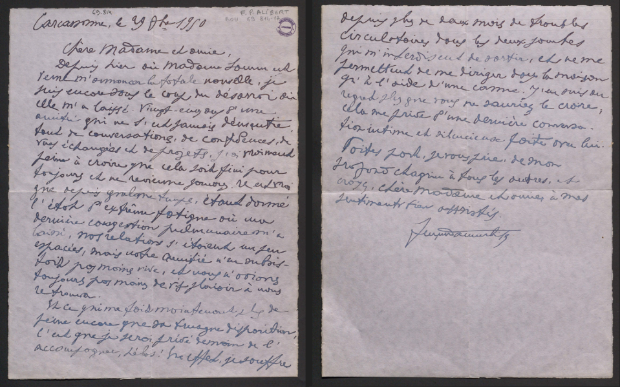 Carcassonne, le 29 Xbre 1950
Chère Madame et amie,
Depuis hier où Madame
venue m'annoncer la fatale nouvelle, je
suis encore sous le coup du désarroi où
elle m'a laissé. Vingt-cinq ans d'une
amitié qui ne s'est jamais démentie,
tant de conversations, de confidences, de
vues échangées et de projets, j'ai vraiment
peine à croire que cela soit fini pour
toujours et ne revienne jamais. Il est vrai
que depuis quelque temps, étant donné
l'état d'extrême fatigue où ma
dernière congestion pulmonaire m'a
laissé, nos relations s'étaient un peu
espacées, mais notre amitié n'en subsis-
tait pas moins vive, et nous n'avions
toujours pas moins de plaisir à nous
retrouver.
Et ce qui me fait maintenant plus de
peine encore que sa tragique disparition,
c'est que je serai privé demain de l'
accompagner, hélas! En effet, je souffre
depuis plus de deux mois de troubles
circulatoires dans les deux jambes
qui m'interdisent de sortir, et ne me
permettent de me diriger dans la maison
qu'à l'aide d'une canne. J'en suis au
regret plus que vous ne sauriez le croire,
cela me prive d'une dernière conversa-
tion intime et silencieuse faite avec lui.
Faites part, je vous prie, de mon
profond chagrin à tous les autres, et
croyez, chère Madame et amie, à mes
sentiments très attristés.